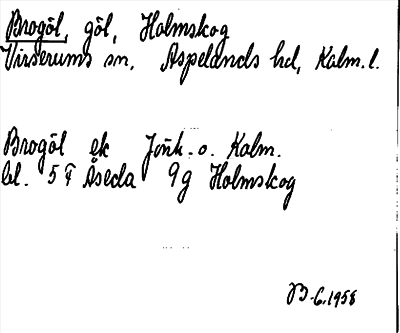 Brogöl, göl, Holmskog
Virserums sn, Aspelands hd, Kalm. l.
Brogöl ek Jönk. o. Kalm.
bl. 5 F Åseda 9g Holmskog
B. 6. 1958